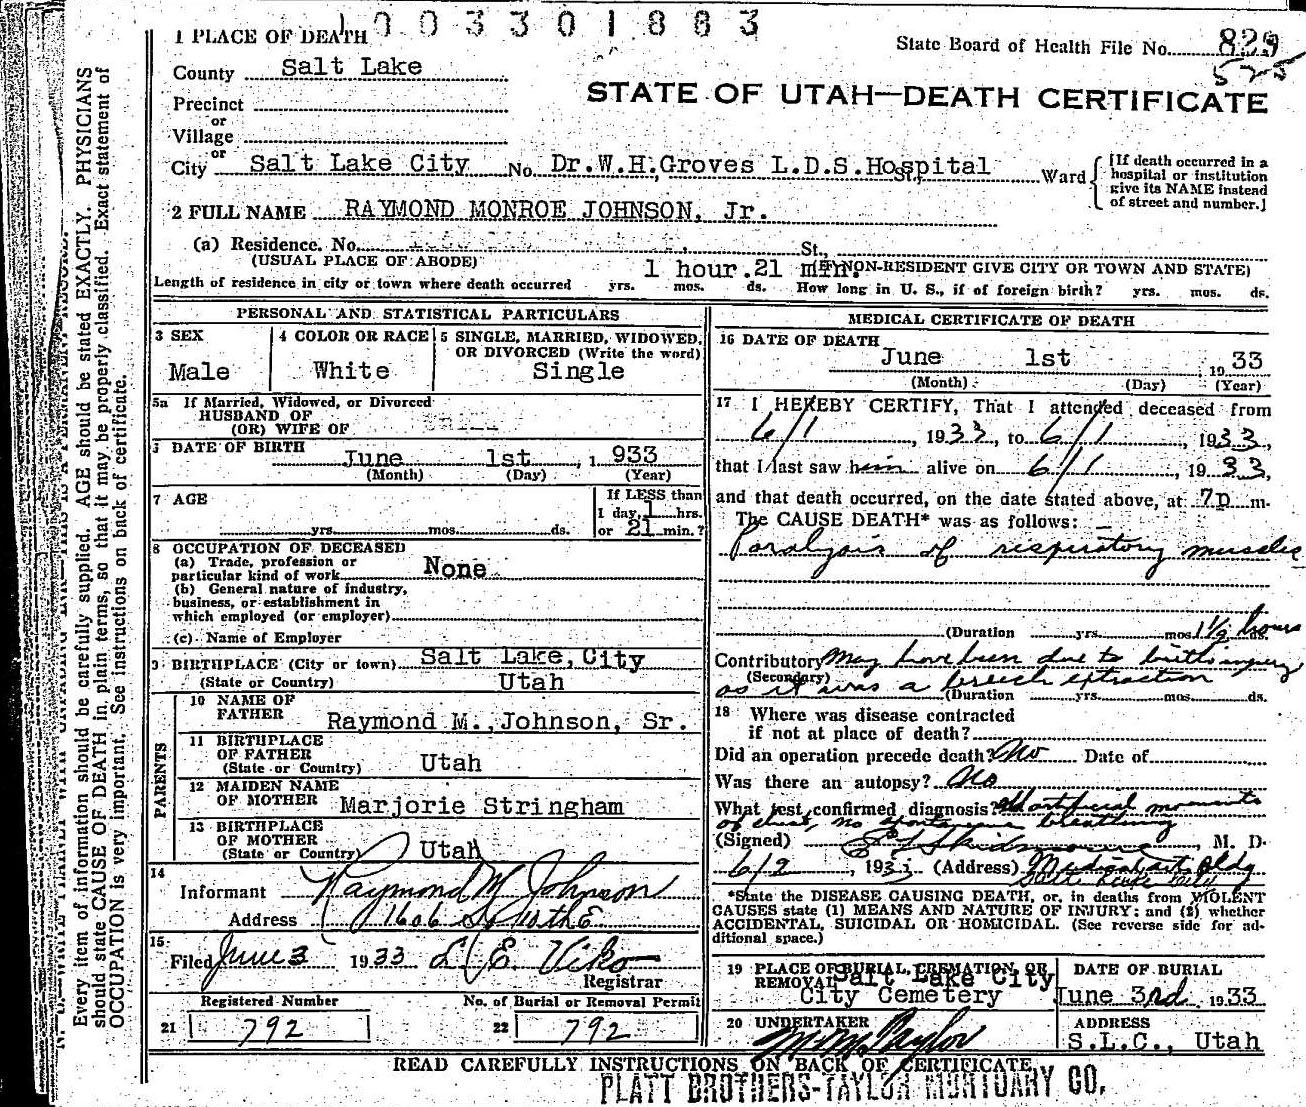 1003301883
1 PLACE OF DEATH
State Board of Health File No. 829
525
County Salt Lake
STATE OF UTAH—DEATH CERTIFICATE
Precinct
or
Village
or
City Salt Lake City No. Dr.W.H.Groves L.D.S.Hospital St., Ward
[If death occurred in a hospital or institution give its NAME instead of street and number.]
2 FULL NAME RAYMOND MONROE JOHNSON, Jr.
(a) Residence. No. St.,
(USUAL PLACE OF ABODE) 1 hour 21 min. (IF NON-RESIDENT GIVE CITY OR TOWN AND STATE)
Length of residence in city or town where death occurred yrs. mos. ds. How long in U. S., if of foreign birth? yrs. mos. ds.
PERSONAL AND STATISTICAL PARTICULARS
3 SEX
Male
4 COLOR OR RACE
White
5 SINGLE, MARRIED, WIDOWED,
OR DIVORCED (Write the word)
Single
5a If Married, Widowed, or Divorced
HUSBAND OF
(OR) WIFE OF
DATE OF BIRTH
June 1st, 1933
(Month) (Day) (Year)
7 AGE
yrs. mos. ds.
If LESS than
1 day, 1 hrs.
or 21 min.?
8 OCCUPATION OF DECEASED
(a) Trade, profession or
particular kind of work None
(b) General nature of industry,
business, or establishment in
which employed (or employer)
(c) Name of Employer
9 BIRTHPLACE (City or town) Salt Lake, City
(State or Country) Utah
PARENTS
10 NAME OF
FATHER Raymond M., Johnson, Sr.
11 BIRTHPLACE
OF FATHER
(State or Country) Utah
12 MAIDEN NAME
OF MOTHER Marjorie Stringham
13 BIRTHPLACE
OF MOTHER
(State or Country) Utah
14
Informant Raymond M Johnson
Address 1606 So 10th E
15
Filed June 3 1933 E. Viko
Registrar
Registered Number
21 792
No. of Burial or Removal Permit
22 792
MEDICAL CERTIFICATE OF DEATH
16 DATE OF DEATH
June 1st 1933
(Month) (Day) (Year)
17 I HEREBY CERTIFY, That I attended deceased from
6/1, 1933, to 6/1, 1933,
that I last saw him alive on 6/1, 1933,
and that death occurred, on the date stated above, at 7p m.
The CAUSE DEATH* was as follows:
Paralysis of respiratory muscles
(Duration yrs. mos. 1½ hours
Contributory May have been due to birth injury
(Secondary)
as it was a breech extraction
(Duration yrs. mos. ds.
18 Where was disease contracted
if not at place of death?
Did an operation precede death? No Date of
Was there an autopsy? No
What test confirmed diagnosis? artificial moments
of chest, no spontaneous breathing
(Signed) Skidmore, M. D.
6/2, 1933 (Address) Medical Arts Bldg
Salt Lake City
*State the DISEASE CAUSING DEATH, or, in deaths from VIOLENT
CAUSES state (1) MEANS AND NATURE OF INJURY; and (2) whether
ACCIDENTAL, SUICIDAL OR HOMICIDAL. (See reverse side for ad-
ditional space.)
19 PLACE OF BURIAL, CREMATION, OR
REMOVAL Salt Lake City
City Cemetery
DATE OF BURIAL
June 3rd 1933
20 UNDERTAKER
Taylor
ADDRESS
S.L.C., Utah
READ CAREFULLY INSTRUCTIONS ON BACK OF CERTIFICATE
PLATT BROTHERS-TAYLOR MORTUARY CO.
Every item of information should be carefully supplied. AGE should be stated EXACTLY. PHYSICIANS
should state CAUSE OF DEATH in plain terms, so that it may be properly classified. Exact statement of
OCCUPATION is very important. See instructions on back of certificate.